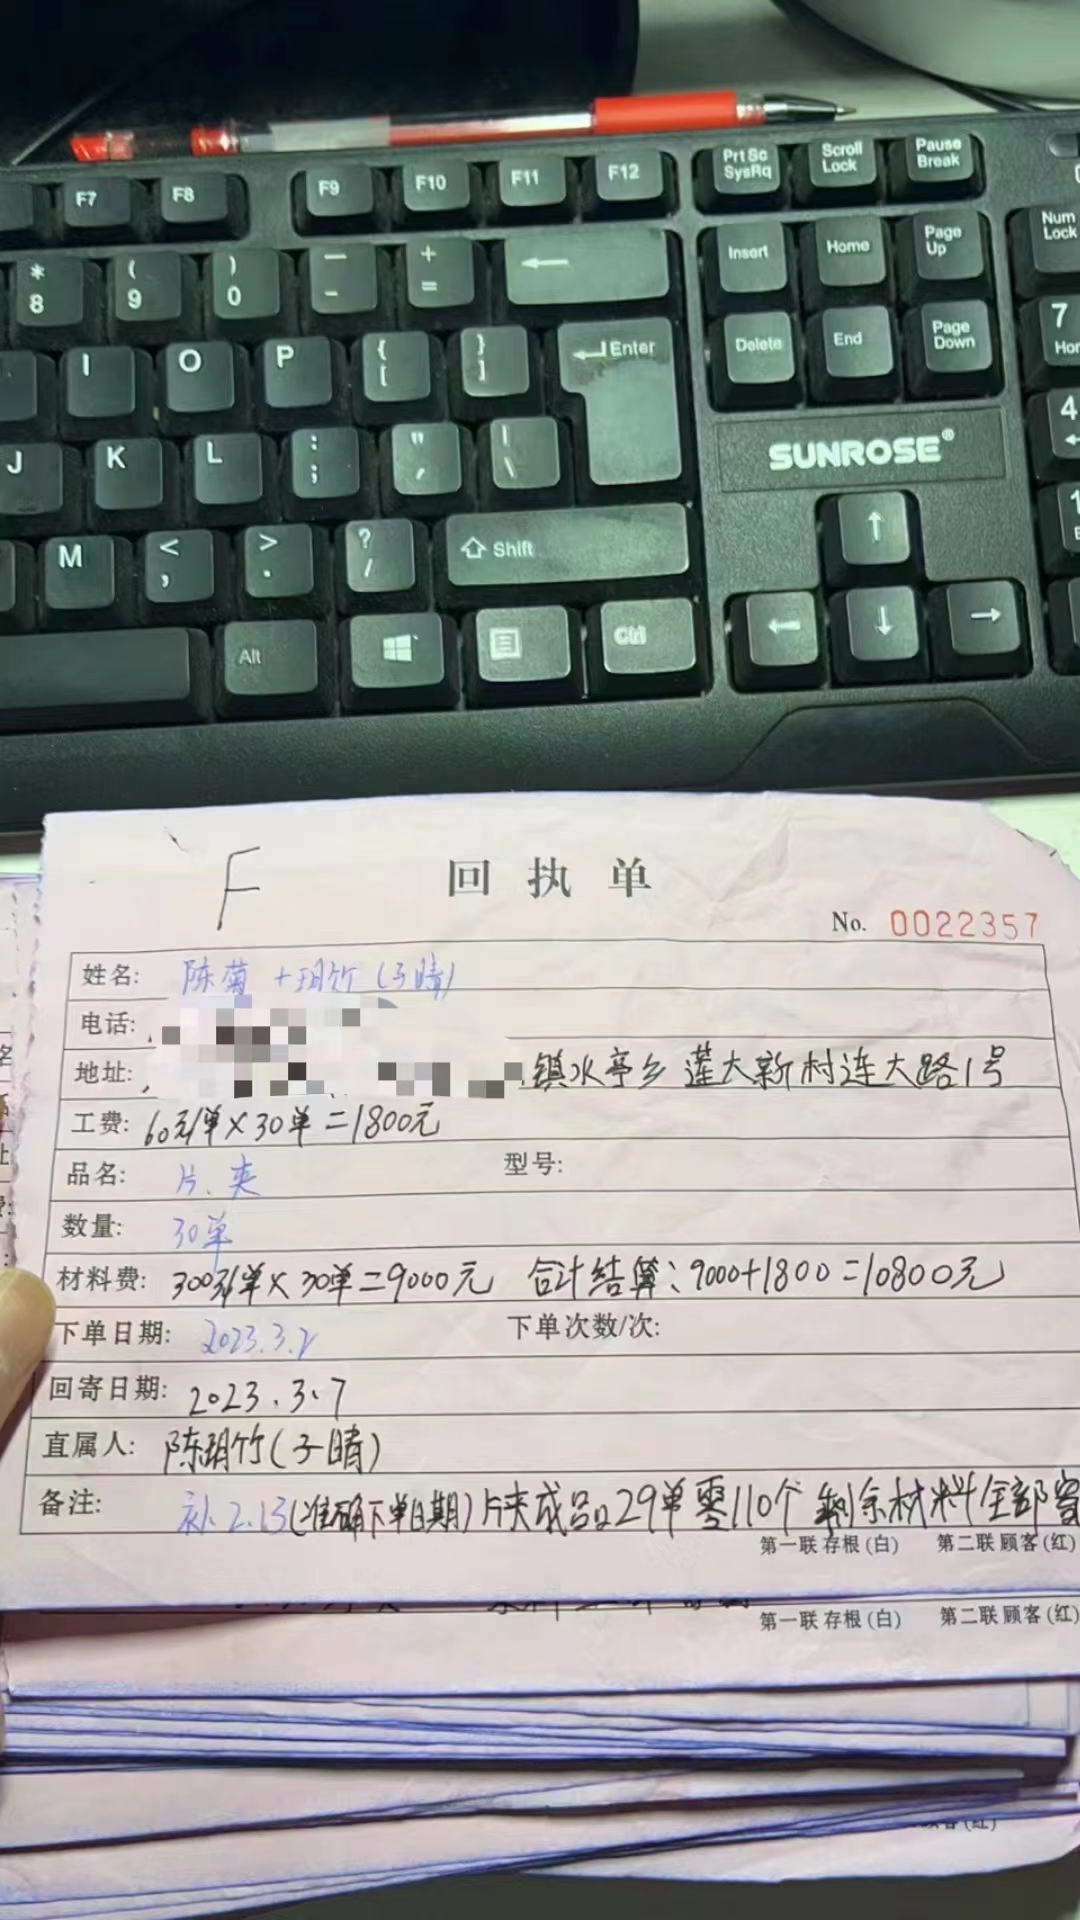 F7 F8 F9 F10 F11 F12 Prt Sc SysRq Scroll Lock Pause Break
* 8 ( 9 ) 0 — - + = Insert Home Page Up Num Lock
I O P { [ } ] Enter Delete End Page Down 7
J K L : ; " , | \ SUNROSE® 4
M < , > . ? / Shift
Alt Ctrl
F
回执单
No. 0022357
姓名: 陈菊 + 玥竹 (子晴)
电话:
地址: 镇水亭乡 莲大新村连大路1号
工费: 60元/单×30单=1800元
品名: 片.夹 型号:
数量: 30单
材料费: 300元/单×30单=9000元 合计结算:9000+1800=10800元
下单日期: 2023.3.2 下单次数/次:
回寄日期: 2023.3.7
直属人: 陈玥竹(子晴)
备注: 补2.13(准确下单日期)片夹成品29单零110个 剩余材料全部寄
第一联 存根 (白) 第二联 顾客 (红)
第一联 存根 (白) 第二联 顾客 (红)